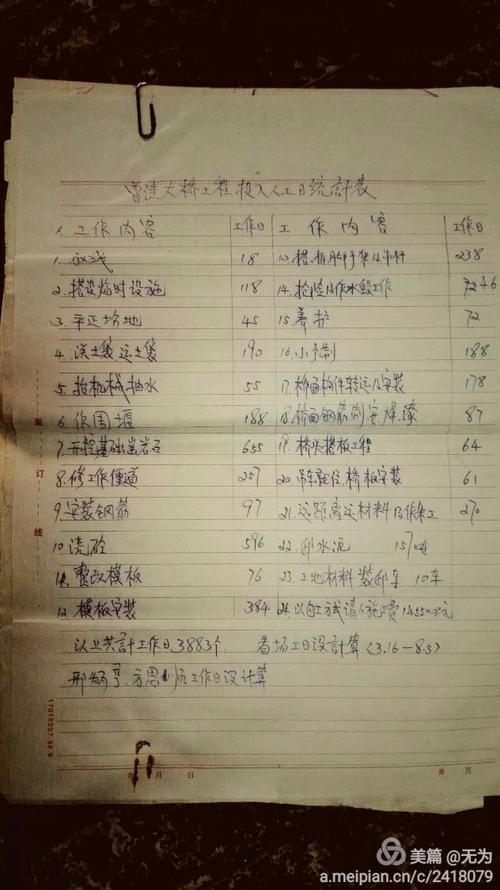 曹进大桥工程投入人工日统計表
工作内容 工作日 工作内容 工作日
1. 放线 18 13. 搭、拆脚手架及吊杆 238
2. 搭设临时设施 118 14. 抢险及作水毁工作 46
3. 平正场地 45 15. 养护 72
4. 装土袋运土袋 190 16. 小予制 188
5. 抬机械抽水 55 17. 桥面构件转运及安装 178
6. 作围堰 188 18. 桥面钢筋制安焊 87
7. 开挖基础出岩石 655 19. 桥头搭板工程 64
8. 修工作便道 257 20. 吊车就位桥板安装 61
9. 安装钢筋 97 21. 远距离运材料及作杂工 270
10. 浇砼 596 22. 卸水泥 157吨
11. 整改模板 76 23. 工地材料装卸车 10车
12. 模板安装 384 24. 以包工方式请人施工费
以上共計工作日3883个. 看场工日没計算(3.16－8.5)
工作日没計算
装
订
线
年 月 日 第 页
美篇 @无为
a.meipian.cn/c/2418079